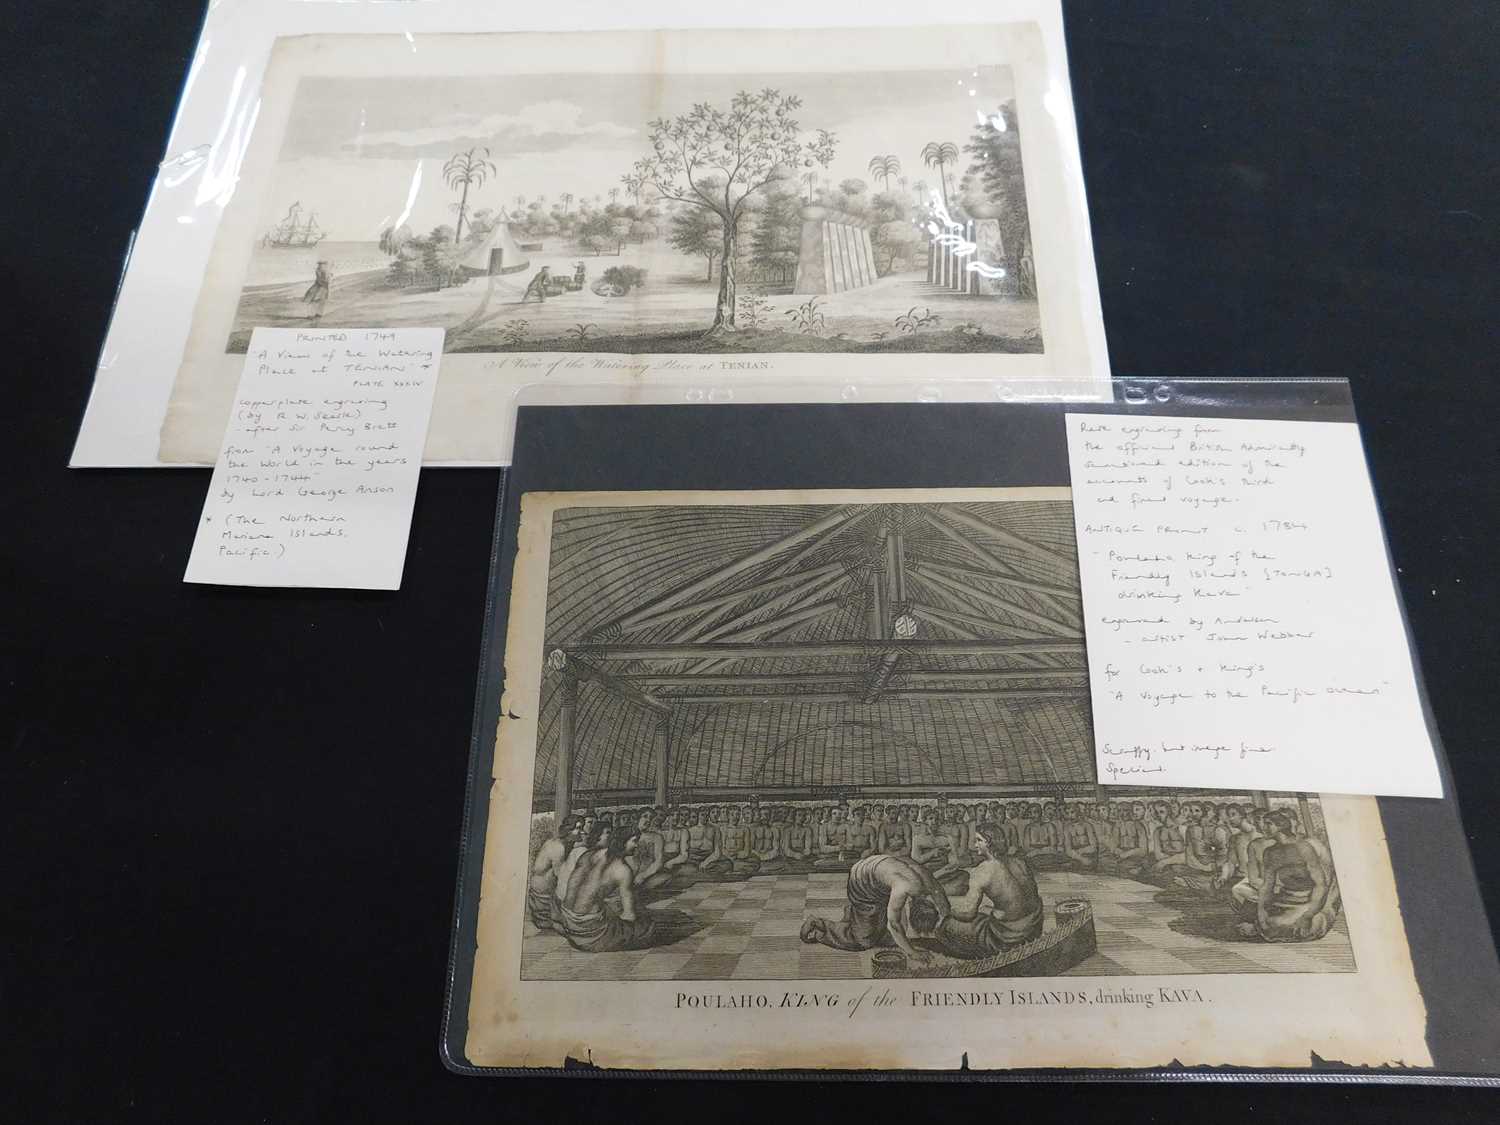 A View of the Watering Place at TENIAN.
PRINTED 1749
"A View of the Watering
Place at TENIAN" *
PLATE XXXIV
copperplate engraving
(by R. W. Seale)
- after Sir Percy Brett
from "A Voyage round
the World in the years
1740-1744"
by Lord George Anson
* (The Northern
Mariana Islands,
Pacific.)
Rare engraving from
the official British Admiralty
sanctioned edition of the
accounts of Cook's third
and final voyage.
ANTIQUE PRINT c. 1784
"Poulaho King of the
Friendly Islands [TONGA]
drinking Kava"
engraved by Anderson
- artist John Webber
for Cook's + King's
"A Voyage to the Pacific Ocean"
Scruffy. but image fine
POULAHO, KING of the FRIENDLY ISLANDS, drinking KAVA.